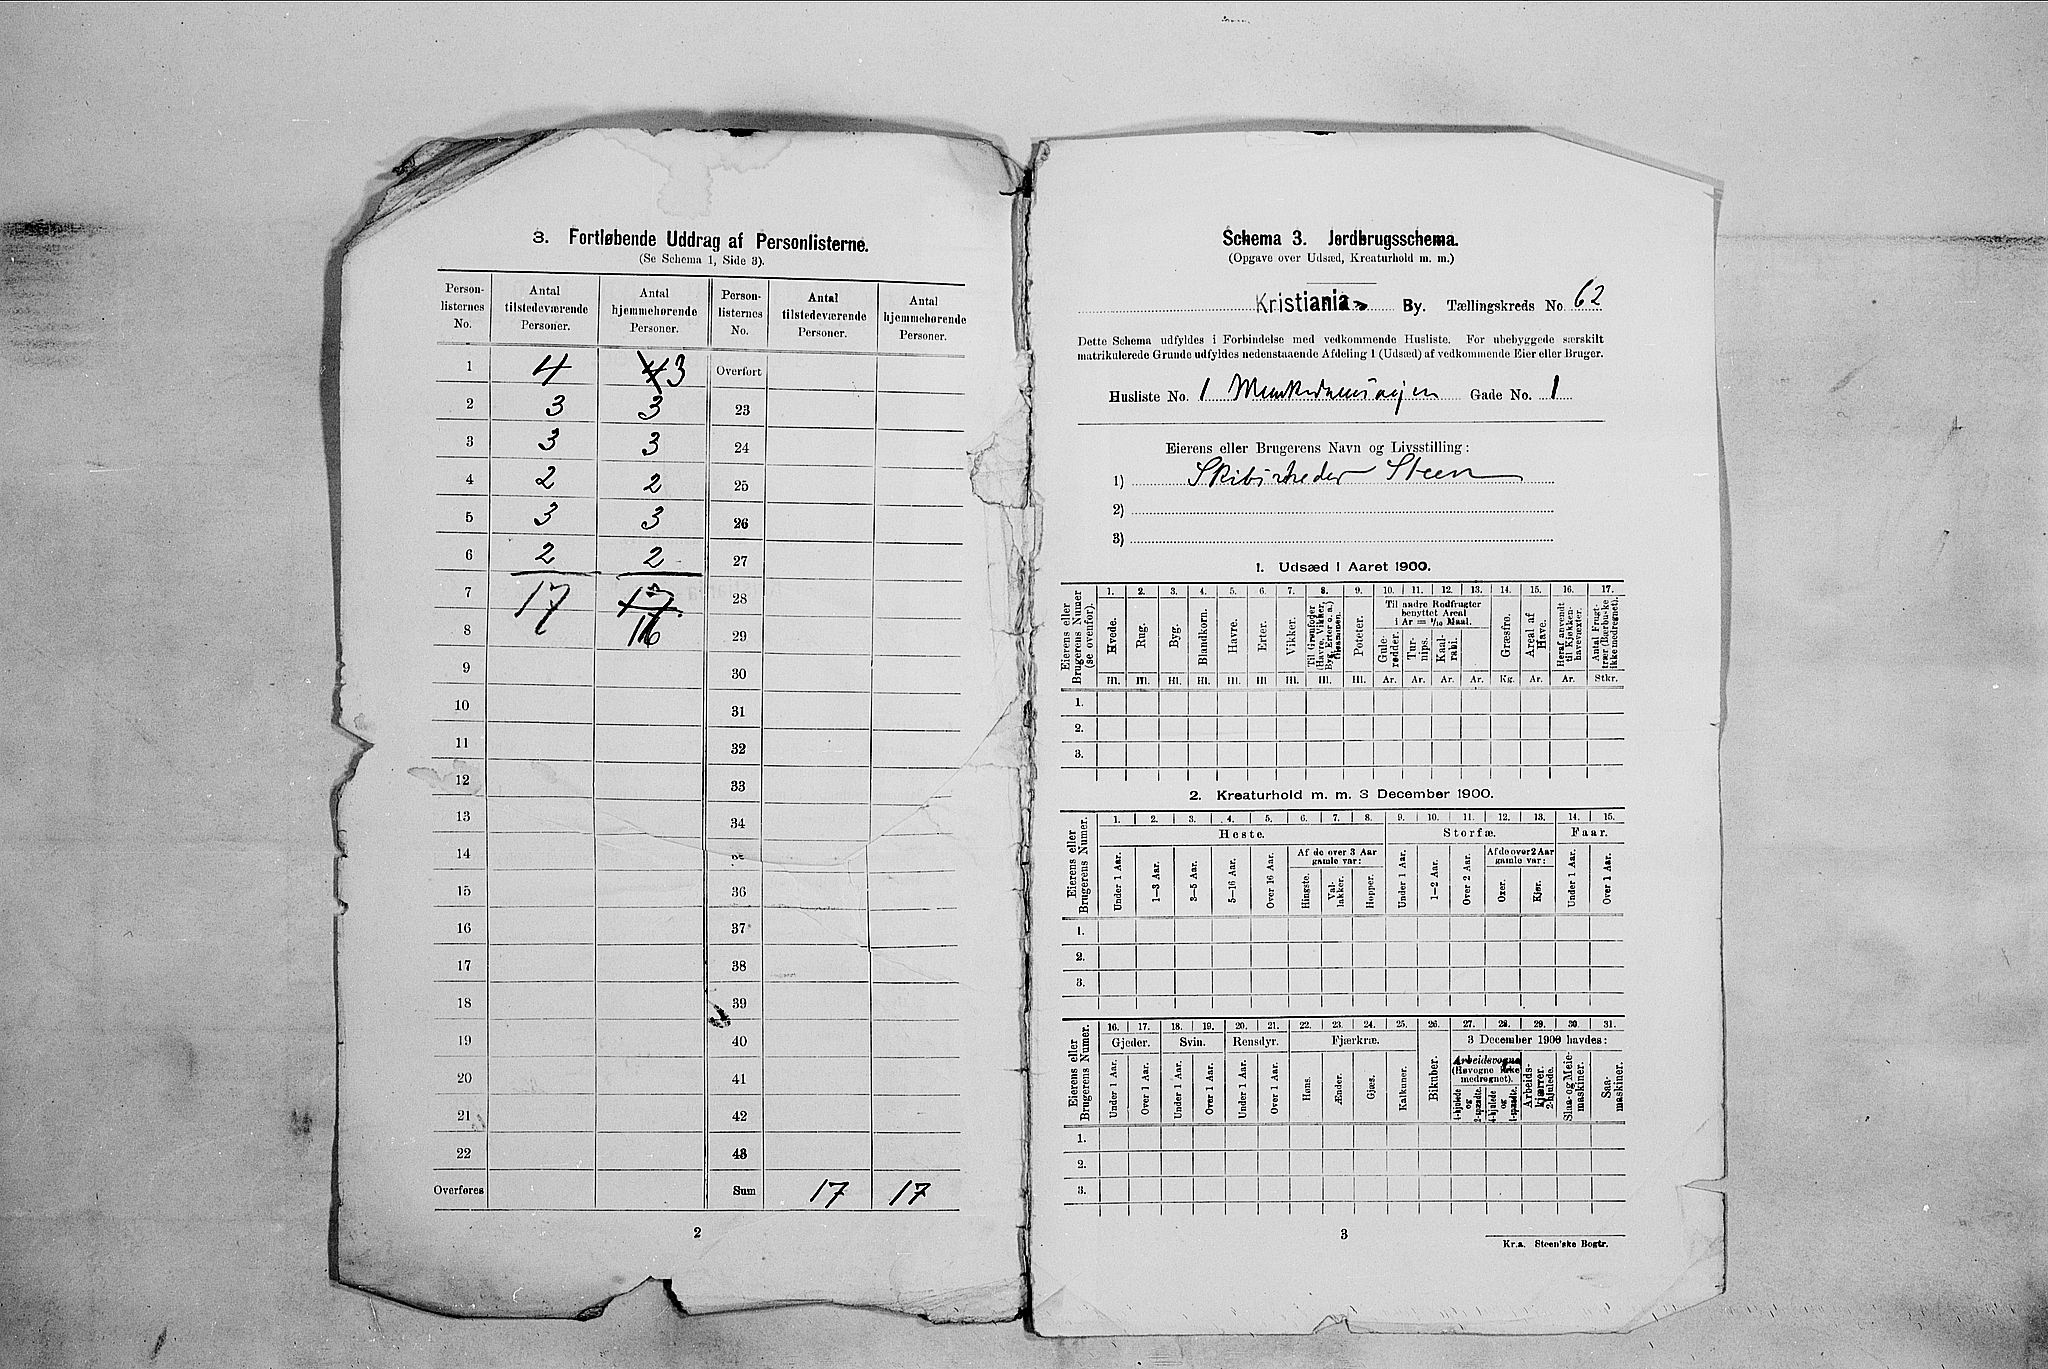 3. Fortløbende Uddrag af Personlisterne.
(Se Schema 1, Side 3).
Person-listernes No. | Antal tilstedeværende Personer. | Antal hjemmehørende Personer. | Person-listernes No. | Antal tilstedeværende Personer. | Antal hjemmehørende Personer.
1 4 4 3 Overført
2 3 3 23
3 3 3 24
4 2 2 25
5 3 3 26
6 2 2 27
7 17 17 28
8 16 29
9 30
10 31
11 32
12 33
13 34
14
15 36
16 37
17 38
18 39
19 40
20 41
21 42
22 43
Overføres Sum 17 17
2
Schema 3. Jordbrugsschema.
(Opgave over Udsæd, Kreaturhold m. m.)
Kristiania By. Tællingskreds No. 62
Dette Schema udfyldes i Forbindelse med vedkommende Husliste. For ubebyggede særskilt
matrikulerede Grunde udfyldes nedenstaaende Afdeling 1 (Udsæd) af vedkommende Eier eller Bruger.
Husliste No. 1 Munkedamsveien Gade No. 1
Eierens eller Brugerens Navn og Livsstilling:
1) Skibsreder Steen
2)
3)
1. Udsæd i Aaret 1900.
Eierens eller Brugerens Numer (se ovenfor).
1. 2. 3. 4. 5. 6. 7. 8. 9. 10. 11. 12. 13. 14. 15. 16. 17.
Hvede. Rug. Byg. Blandkorn. Havre. Erter. Vikker. Til Grønfoder (Havre, Vikker, Byg, Erter o. a.) tilsammen. Poteter.
Til andre Rodfrugter benyttet Areal i Ar = 1/10 Maal.
Gule-rødder. Tur-nips. Kaal-rabi. Græsfrø. Areal af Have. Heraf anvendt til Kjøkken-havevæxter. Antal Frugt-trær (Bærbuske ikke medregnet).
Hl. Hl. Hl. Hl. Hl. Hl. Hl. Hl. Hl. Ar. Ar. Ar. Ar. Kg. Ar. Ar. Stkr.
1.
2.
3.
2. Kreaturhold m. m. 3 December 1900.
Eierens eller Brugerens Numer.
1. 2. 3. 4. 5. 6. 7. 8. 9. 10. 11. 12. 13. 14. 15.
Heste. Storfæ. Faar.
Af de over 3 Aar gamle var: Af de over 2 Aar gamle var:
Under 1 Aar. 1—3 Aar. 3—5 Aar. 5—16 Aar. Over 16 Aar. Hingste. Val-lakker. Hopper. Under 1 Aar. 1—2 Aar. Over 2 Aar. Oxer. Kjør. Under 1 Aar. Over 1 Aar.
1.
2.
3.
Eierens eller Brugerens Numer.
16. 17. 18. 19. 20. 21. 22. 23. 24. 25. 26. 27. 28. 29. 30. 31.
Gjeder. Svin. Rensdyr. Fjærkræ. Bikuber. 3 December 1900 havdes:
Under 1 Aar. Over 1 Aar. Under 1 Aar. Over 1 Aar. Under 1 Aar. Over 1 Aar. Høns. Ænder. Gjæs. Kalkuner.
Arbeidsvogne (Høvogne ikke medregnet).
4-hjulede og 2-spændte. 4-hjulede og 1-spændte. Arbeids-kjærrer, 2-hjulede. Slaa- og Meie-maskiner. Saa-maskiner.
1.
2.
3.
3
Kr.a. Steen'ske Bogtr.